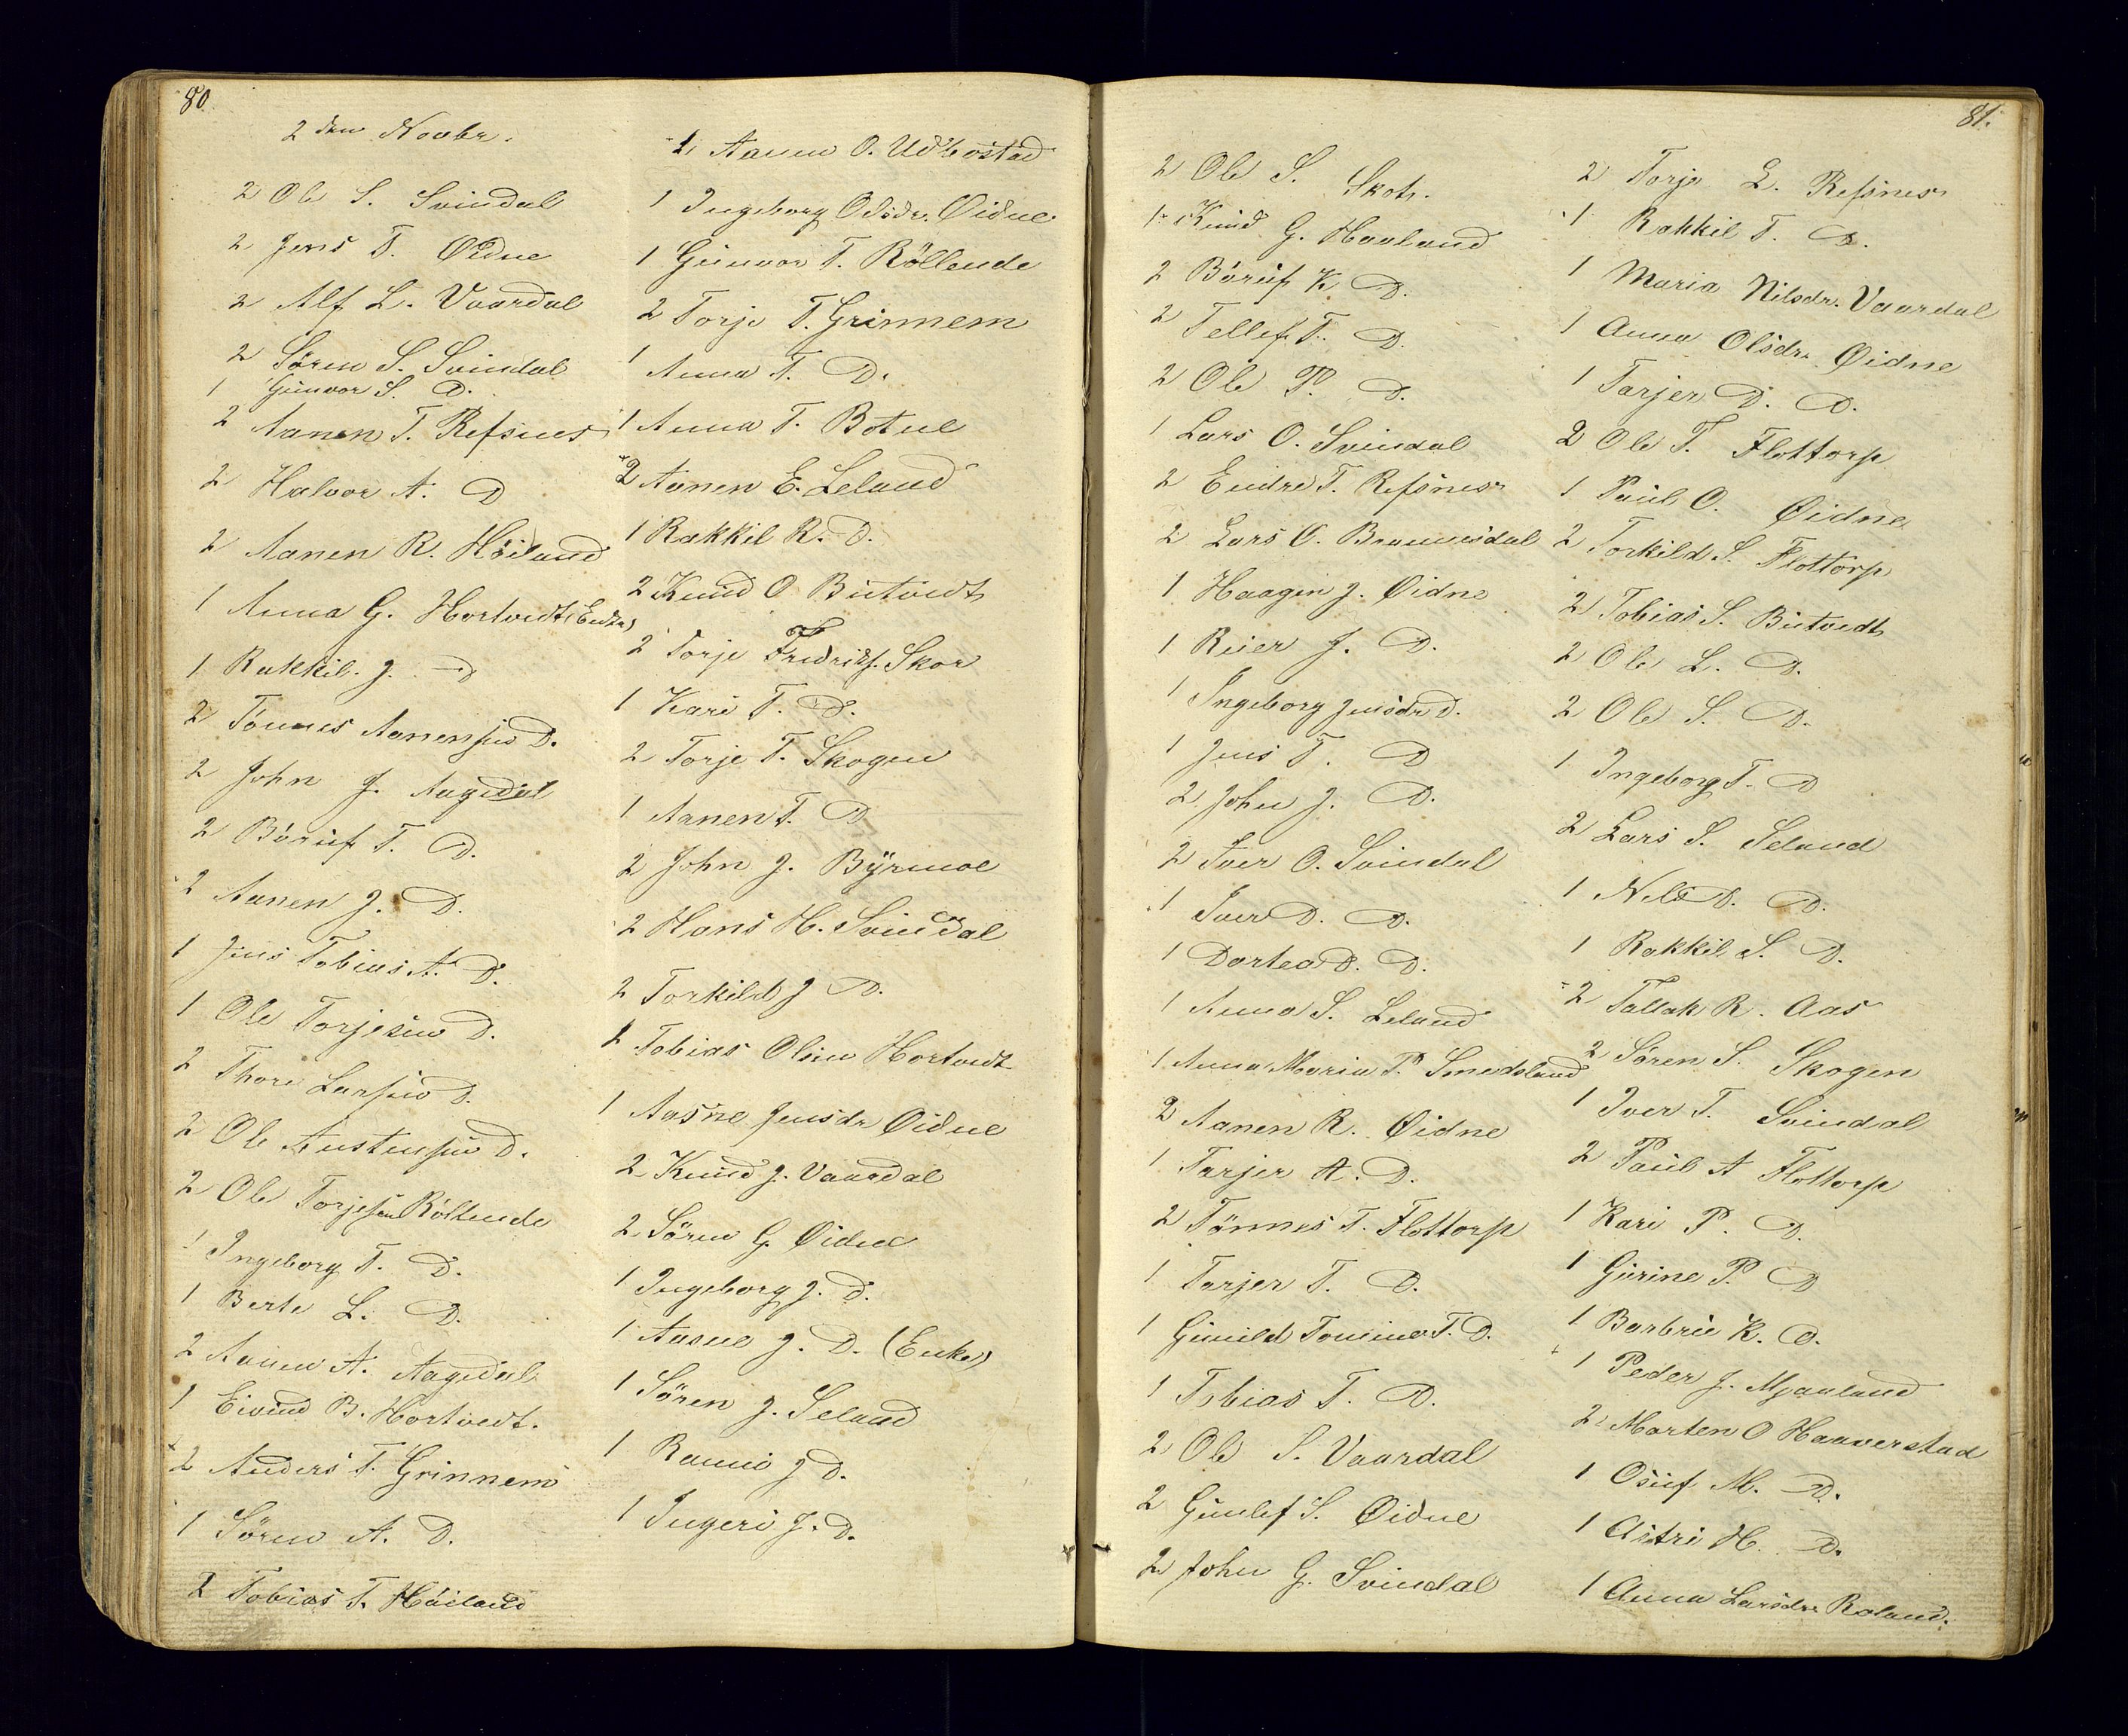 80.
2den Novbr.
2 Ole S. Svindal
2 Jens T. Øidne
2 Alf L. Vaardal
2 Søren S. Svindal
1 Gunvor S. D.
2 Aanen T. Refsnes
2 Halvor A. D
2 Aanen R. Höiland
1 Anna G. Hortvedt
1 Rakkil J. D
2 Tönnes Aanensen D.
2 John J. Aagedal
2 Böruf T. D.
2 Aanen J. D.
1 Jens Tobias A. D.
1 Ole Torjesen D.
2 Thore Larsen D.
2 Ole Austensen D.
2 Ole Torjesen Röllende
1 Ingeborg T. D.
1 Berte L. D.
2 Aanen A. Aagedal
1 Eivind B. Hortvedt.
2 Anders T. Grinnem
1 Sören A. D.
2 Tobias T. Höiland
2 Aanen O. Udbostad
1 Ingeborg Olsdr. Øidne
1 Gunvor T. Röllende
2 Torje T. Grinnem
1 Anna T. D.
1 Anna T. Botne
2 Aanen E. Leland
1 Rakkil R. D.
2 Knud O Butvedt
2 Torje Fredriks. Skor
1 Kari T. D.
2 Torje T. Skogen
1 Aanen T. D
2 John J. Byrmoe
2 Hans H. Svindal
2 Torkild J D.
2 Tobias Olsen Hortvedt
1 Aasne Jensdr Øidne
2 Knud J. Vaardal
2 Sören G. Øidne
1 Ingeborg J. D.
1 Aasne J. D. (Enke)
1 Sören J. Seland
1 J D.
1 Ingeri J. D.
81.
2 Ole S. Skoh.
1 Knud G. Haaland
2 Böruf K D.
2 Tellef T. D.
2 Ole P. D.
1 Lars O. Svindal
2 Endre T. Refsnes
2 Lars O. Bramsdal
1 Haagen J. Øidne
1 Reier J. D.
1 Ingeborg Jensdr D.
1 Jens T. D
2 John J. D.
2 Iver O. Svindal
1 Iver D. D.
1 Dortea D. D.
1 Anna S. Leland
1 Anna Maria P. Smedsland
2 Aanen R. Øidne
1 Tarjer A. D.
2 Tönnes T. Flottorp
1 Tarjer T. D.
1 Gunild Tomine T. D.
1 Tobias T. D.
2 Ole S. Vaardal
2 Gunlef S. Øidne
2 John G. Svindal
2 Torje L. Refsnes
1 Rakkil T. D.
1 Maria Nilsdr. Vaardal
1 Anna Olsdr. Øidne
1 Tarjer D. D.
2 Ole T. Flottorp
1 Paul O. Øidne
2 Torkild S. Flottorp
2 Tobias S. Butvedt
2 Ole L. D.
2 Ole S. D.
1 Ingeborg T. D
2 Lars S. Seland
1 Nils D. D.
1 Rakkil S. D.
2 Tallak R. Aas
2 Sören S. Skogen
1 Iver T. Svindal
2 Paul A Flottorp
1 Kari P. D.
1 Gurine P. D
1 Barbru K. D.
1 Peder J. Mjaaland
2 Morten O Haaverstad
1 Osuf M. D.
1 Astri H. D.
1 Anna Larsdr. Røland.